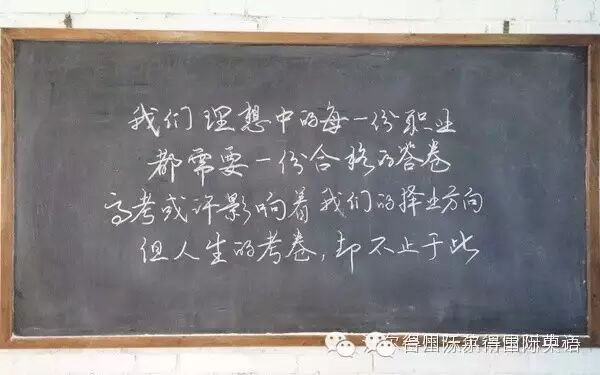 我们理想中的每一份职业
都需要一份合格的答卷
高考或许影响着我们的择业方向
但人生的考卷,却不止于此
沃尔得国际英语